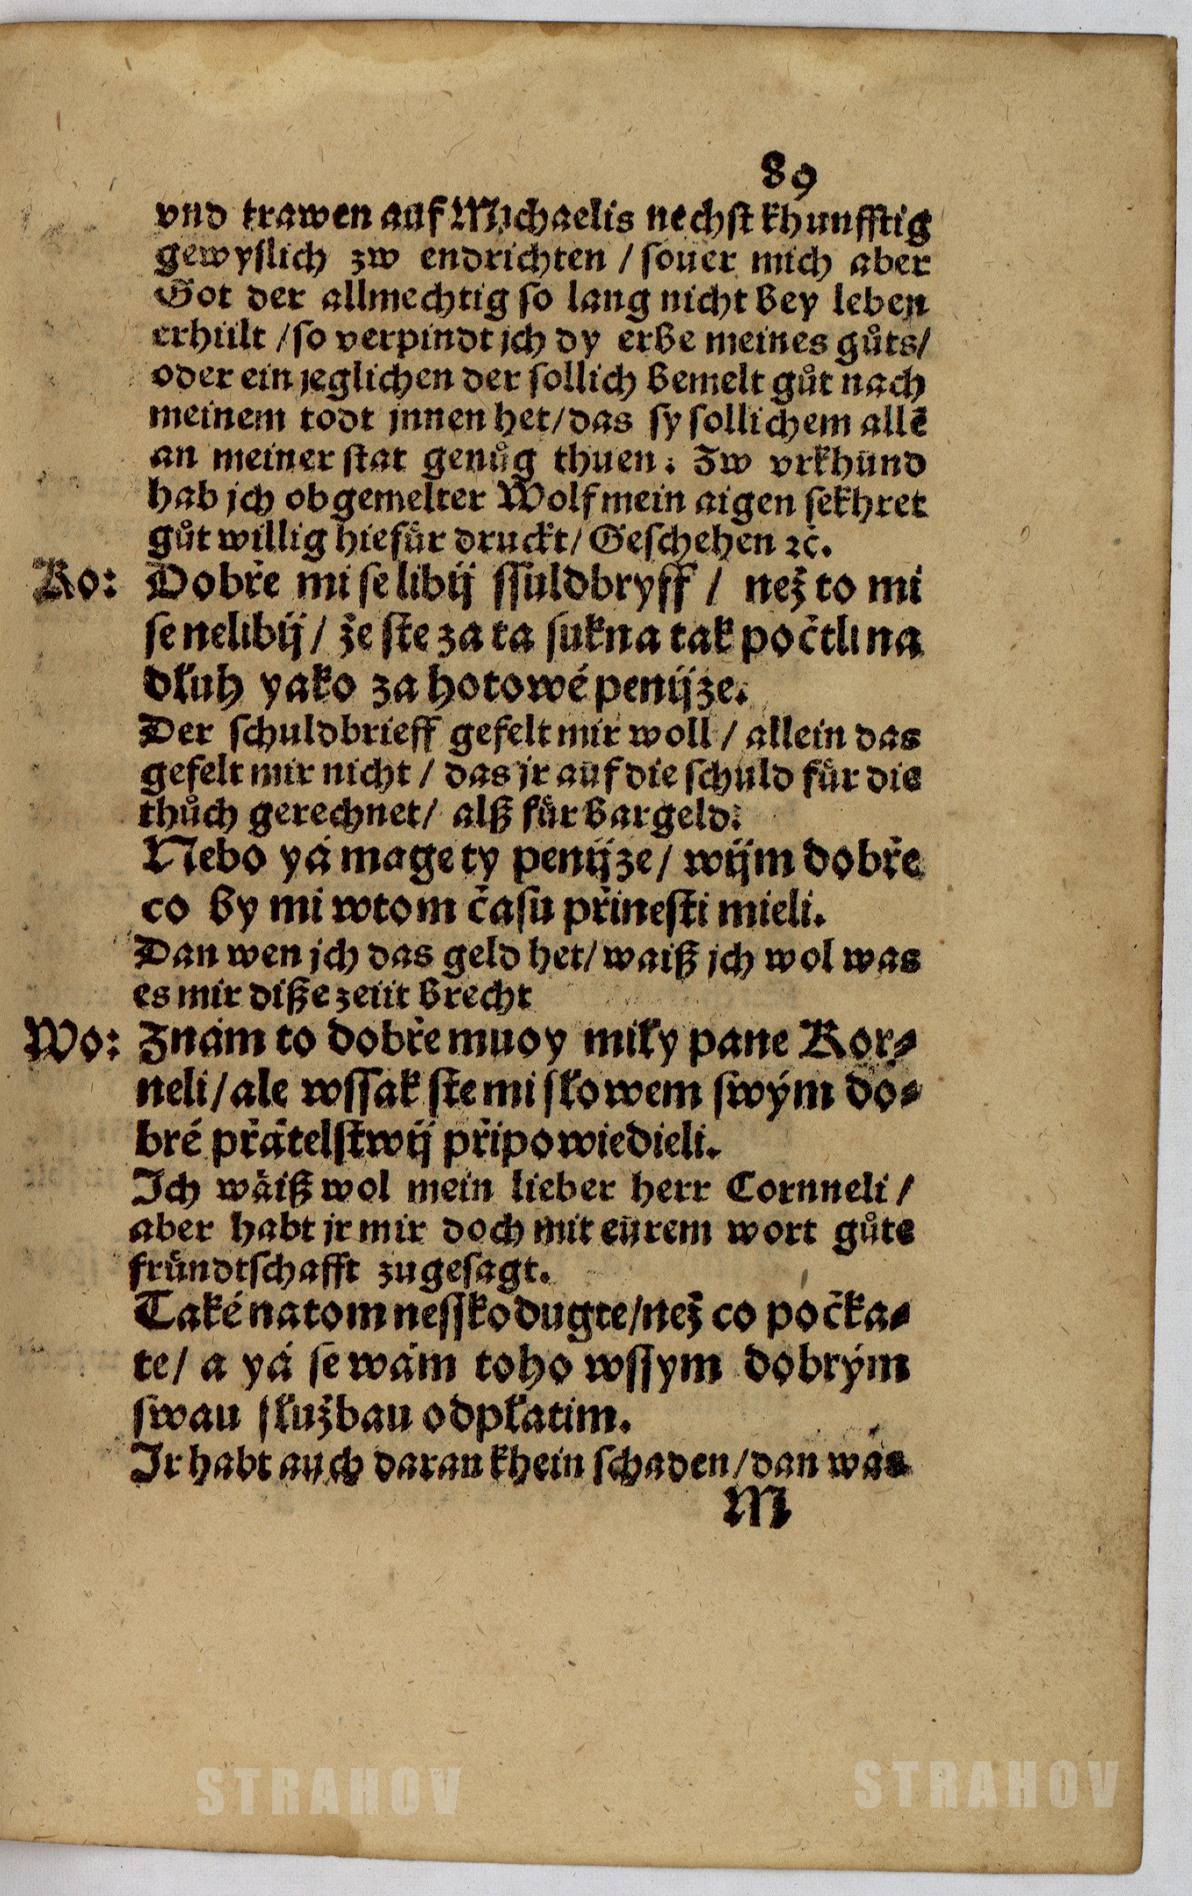 89
vnd trawen auf Michaelis nechst khunfftig
gewyslich zw endrichten / souer mich aber
Got der allmechtig so lang nicht bey leben
erhült / so verpindt jch dy erbe meines gůts /
oder ein jeglichen der sollich bemelt gůt nach
meinem todt jnnen het / das sy sollichem allē
an meiner stat genůg thuen. Zw vrkhünd
hab jch obgemelter Wolf mein aigen sekhret
gůt willig hiefůr druckt / Geschehen ꝛc̃.
Ko: Dobře mi se libij ssuldbryff / než to mi
se nelibij / že ste za ta sukna tak počtli na
dluh yako za hotowé penijze.
Der schuldbrieff gefelt mir woll / allein das
gefelt mir nicht / das jr auf die schuld für die
thůch gerechnet / alß für bargeld.
Nebo yá mage ty penijze / wijm dobře
co by mi wtom času přinesti mieli.
Dan wen jch das geld het / waiß jch wol was
es mir diße zeiit brecht
Wo: Znám to dobře muoy mily pane Kor⸗
neli / ale wssak ste mi slowem swým do⸗
bré přátelstwij připowiedieli.
Ich wäiß wol mein lieber herr Cornneli /
aber habt jr mir doch mit eürem wort gůte
fründtschafft zugesagt.
Také na tom nesskodugte / než co počka⸗
te / a yá se wám toho wssym dobrým
swau službau odplatim.
Ir habt auch daran khein schaden / dan was
M
STRAHOV STRAHOV